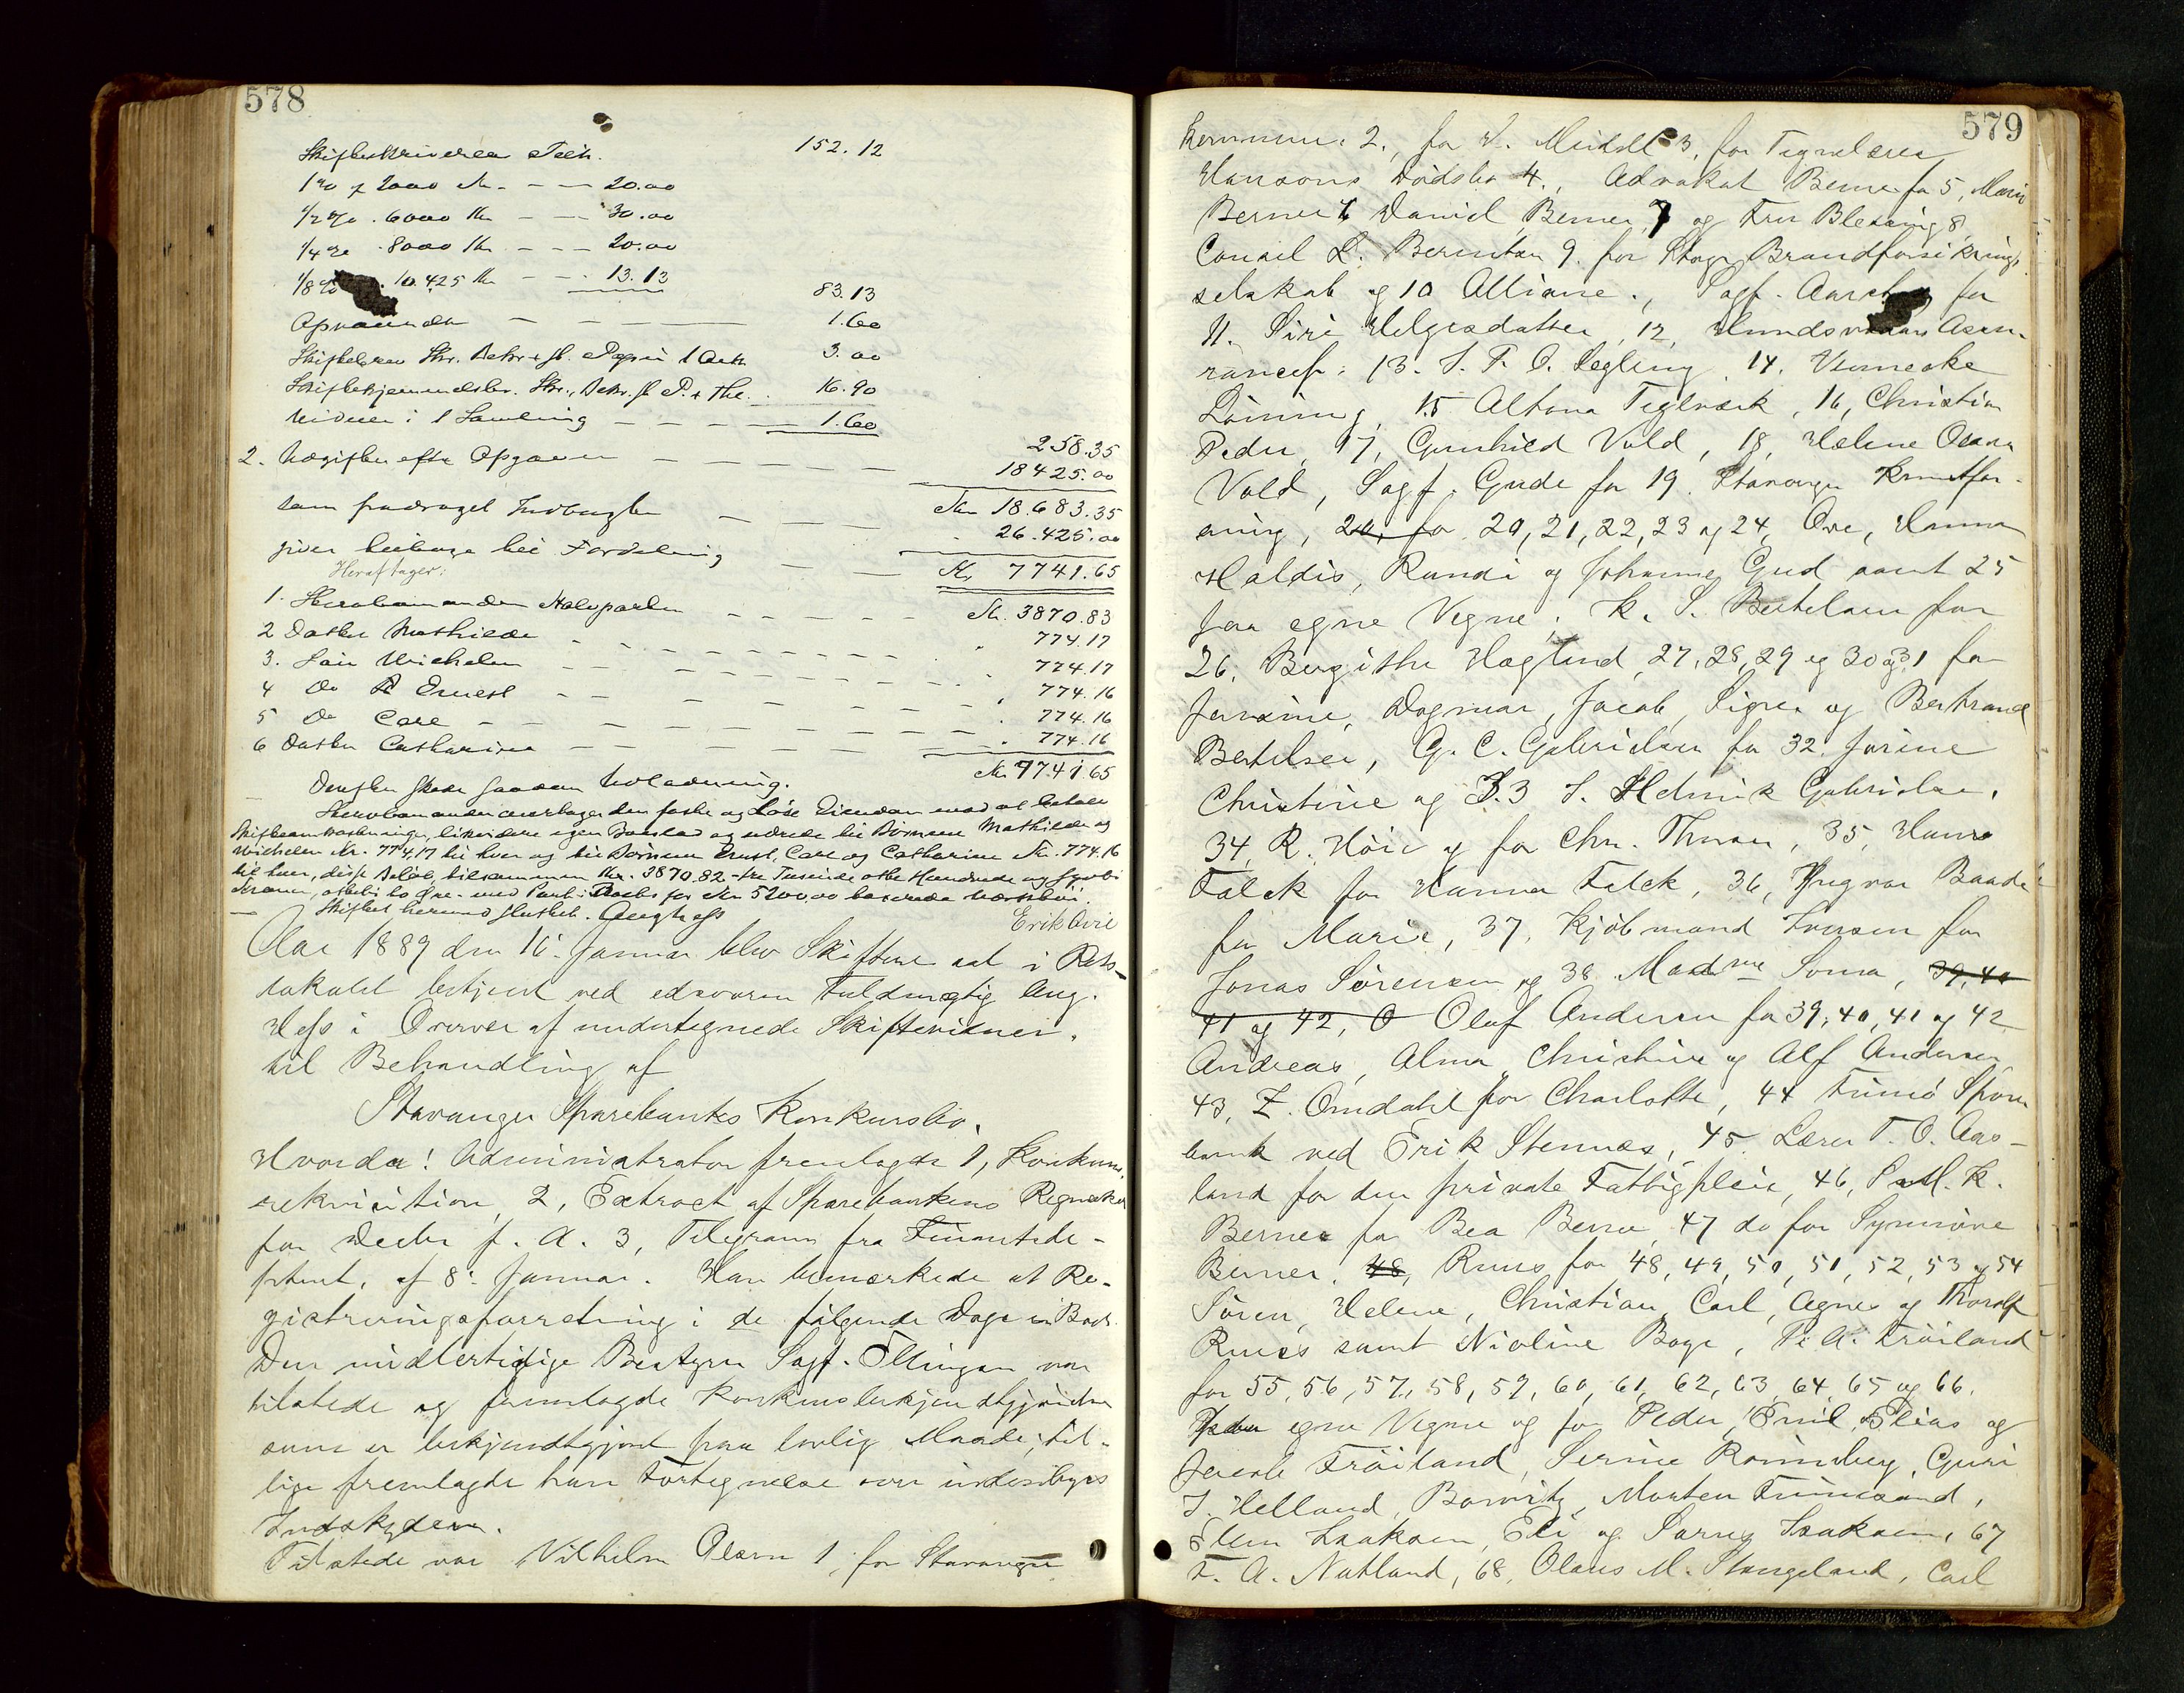 578
Skifteskriveren Teck. 152.12
1 % af 2000 Kr. - - - 20.00
1/2 % . 6000 Kr - - - 30.00
1/4 % . 8000 Kr - - - 20.00
1/8 % . 10.425 Kr - - - 13.13
83.13
1.60
Skiftebrev Skr. Bekr. + st. Papir 1 Ark 3.00
Skr., Bekr. st. P. + Thl. 16.90
Vidner i 1 Samling - - - - 1.60
258.35
2. Udgifter efter Opgaver - - - - 18425.00
Kr. 18.683.35
som fradraget Indtægter - - - 26.425.00
giver tilbage til Fordeling - - Kr. 7741.65
Heraf tager:
1. Skrædermanden Halvparten - - - - Kr. 3870.83
2 Datter Mathilde - - - - 774.17
3. Søn Wilhelm - - - - 774.17
4 Do Ernest - - - - 774.16
5 Do Carl - - - - 774.16
6 Datter Catharina - - - - 774.16
Kr. 7741.65
Derefter skede saadan Udlægning.
overtager den faste og løse Eiendom mod at betale
Skifteomkostninger, likvidere egen Boeslod og udrede til Børnene Mathilde og
Wilhelm Kr. 774,17 til hver og til Børnene Ernst, Carl og Catharina Kr. 774.16
til hver, disse Beløb, tilsammen Kr. 3870.82 - tre Tusinde otte Hundrede og sytti
Kroner, otteti to Øre - med Pant i for Kr 5200,00
Skiftet hermed sluttet. Aug Hess
Erik Avie
Aar 1889 den 16. Januar blev Skifteret sat i Rets-
lokalet betjent ved edsvoren Fuldmægtig Aug.
Hess i Overvær af undertegnede Skiftevidner.
til Behandling af
Stavanger Sparebanks Konkursbo.
Hvorda! Administrator fremlagde 1, Konkurs-
rekvisition, 2, Extract af Sparebankens Regnskab
for Decbr f. A. 3, Telegram fra Finantsde-
ptmt. af 8. Januar. Han bemærkede at Re-
gistreringsforretning i de følgende Dage
Den midlertidige Bestyrer Sagf. Ellingsen var
tilstede og fremlagde Konkursbekjendtgjørelse
som er bekjendtgjort paa lovlig Maade; til-
lige fremlagde han Fortegnelse over indenbyes
Indskydere.
Tilstede var Vilhelm Olsen 1, for Stavanger
579
Kommune 2., for V. Meidell 3, for Tegnelærer
Hansons Dødsbo 4., Advokat Berner for 5, Marie
Berner 6 Daniel Berner 7 og Fru Blessing 8
Consul L. Berentsen 9. for Stavgr Brandforsikrings-
selskab og 10 Alliance., Sagf. Aarstad for
11. Siri Helgesdatter, 12, Assu-
rancef. 13. S. F. O. Legling, 14. Vennecke
Lõining, 15 Altona Teglværk, 16, Christian
Peder, 17, Gunhild Vold, 18, Helene
Vold, Sagf. Gude for 19. Stavanger Kunstfor-
ening, 20, for 20, 21, 22, 23 og 24, Ove, Hanna
Haldis, Randi og Johanne Gud samt 25
for egne Vegne. K. S. Bertelsen for
26, Bergithe Haglund, 27, 28, 29 og 30 og 31 for
Jensine, Dagmar, Jacob, Sigrn og Bertrand
Bertelsen, G. C. Gabrielsen for 32. Jorine
Christine og 33 S. Helmik Gabrielsen.
34, R. Høie og for Chr. Thrane, 35, Hans
Falck for Hanna Falck, 36, Yngvar Baade
for Marie, 37, Kjøbmand Iversen for
Jonas Sørensen og 38 Madme Soma, 39, 40
41 og 42, O Oluf Andersen for 39, 40, 41 og 42
Andreas, Alma, Christine og Alf Andersen
43, Z. Omdahl for Charlotte, 44 Finnø Spare-
bank ved Erik Stennæs, 45 Lærer T. O. Aas-
land for den private Fattigpleie, 46, K.
Berner for Bea Berner, 47 do for Synnøve
Berner, 48, Ruus for 48, 49, 50, 51, 52, 53 og 54
Søren, Helene, Christian, Carl, Agnes og Thoralf
Ruus samt Nicoline Boye, P. A. Frøiland
for 55, 56, 57, 58, 59, 60, 61, 62, 63, 64, 65 og 66.
egne Vegne og for Peder, Emil, Elias og
Jacob Frøiland, Serine Rønneberg, Guri
J. Helland, Borwitz, Morten Finnesand,
Ellen Isaksen, Eli og Isaksen, 67
T. A. Natland, 68, Olaus M. Stangeland, Carl